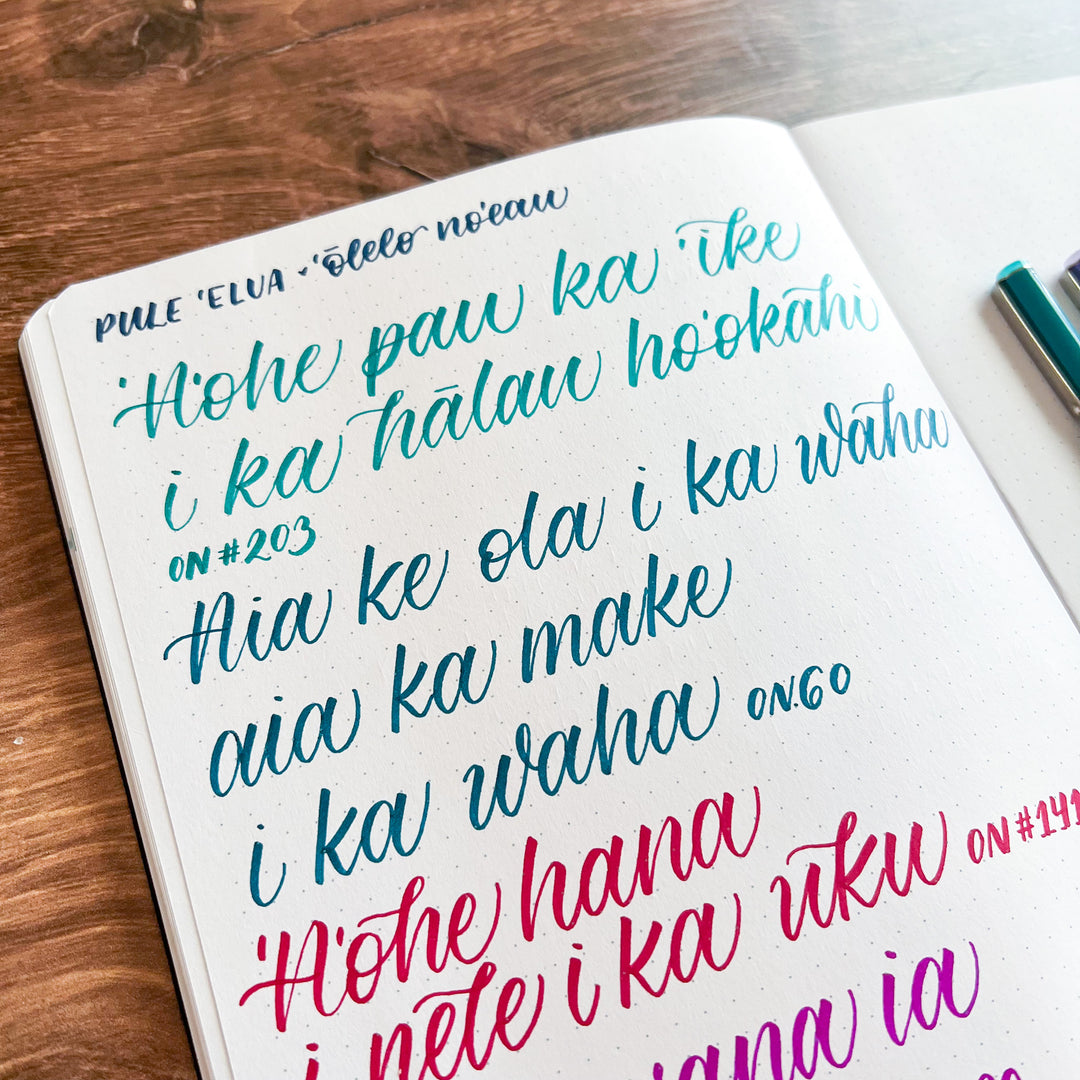 PULE ʻELUA - ʻōlelo noʻeau
ʻAʻohe pau ka ʻike
i ka hālau hoʻokahi
ON #203
Aia ke ola i ka waha
aia ka make
i ka waha ON.60
ʻAʻohe hana
i nele i ka uku ON #141
ia